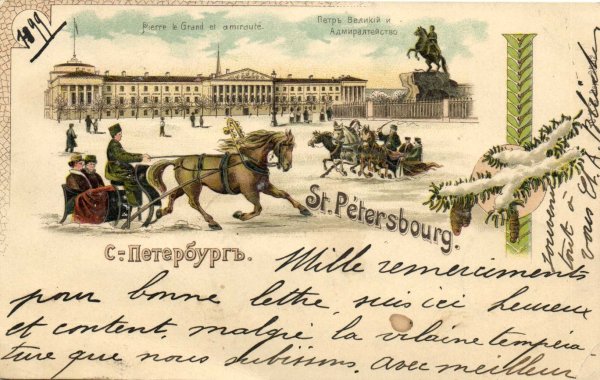 1899
Pierre le Grand et amirauté.
Петръ Великій и
Адмиралтейство
St. Pétersbourg.
С.-Петербургъ.
Mille remerciments
pour bonne lettre, suis ici heureux
et content, malgré la vilaine tempéra-
ture que nous subissons. avec meilleur
souvenir
tout à
vous